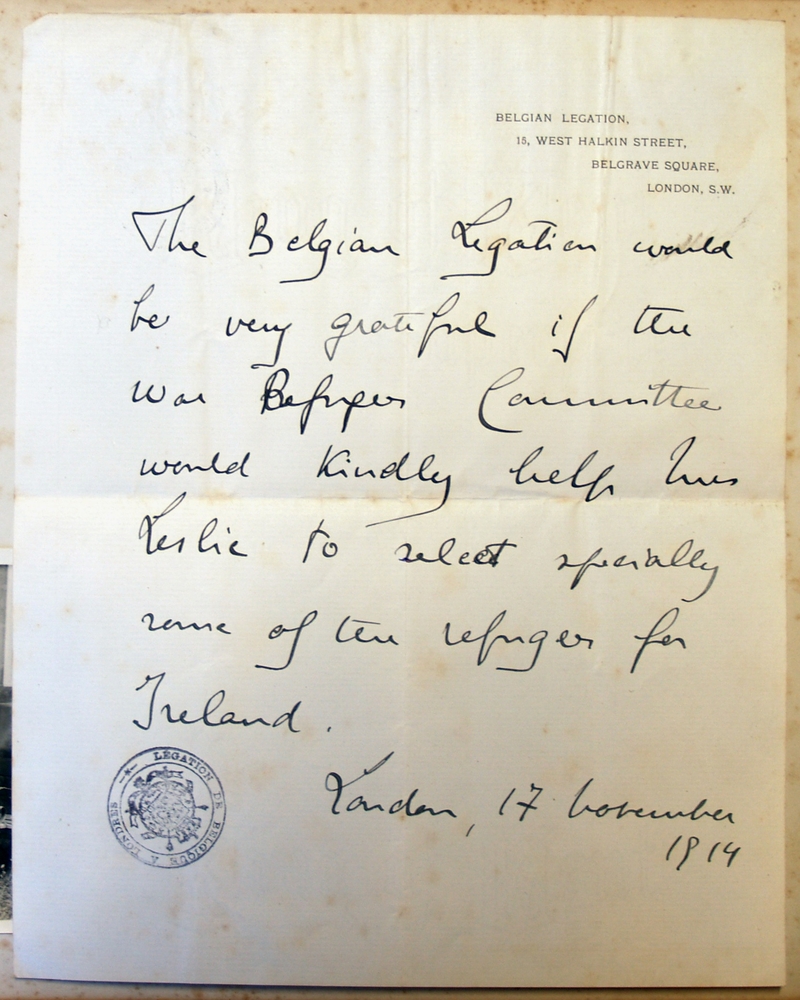 BELGIAN LEGATION,
15, WEST HALKIN STREET,
BELGRAVE SQUARE,
LONDON, S.W.
The Belgian Legation would
be very grateful if the
War Refugees Committee
would kindly help Mrs
Leslie to select specially
some of the refugees for
Ireland.
London, 17 November
1914
LÉGATION DE BELGIQUE A LONDRES